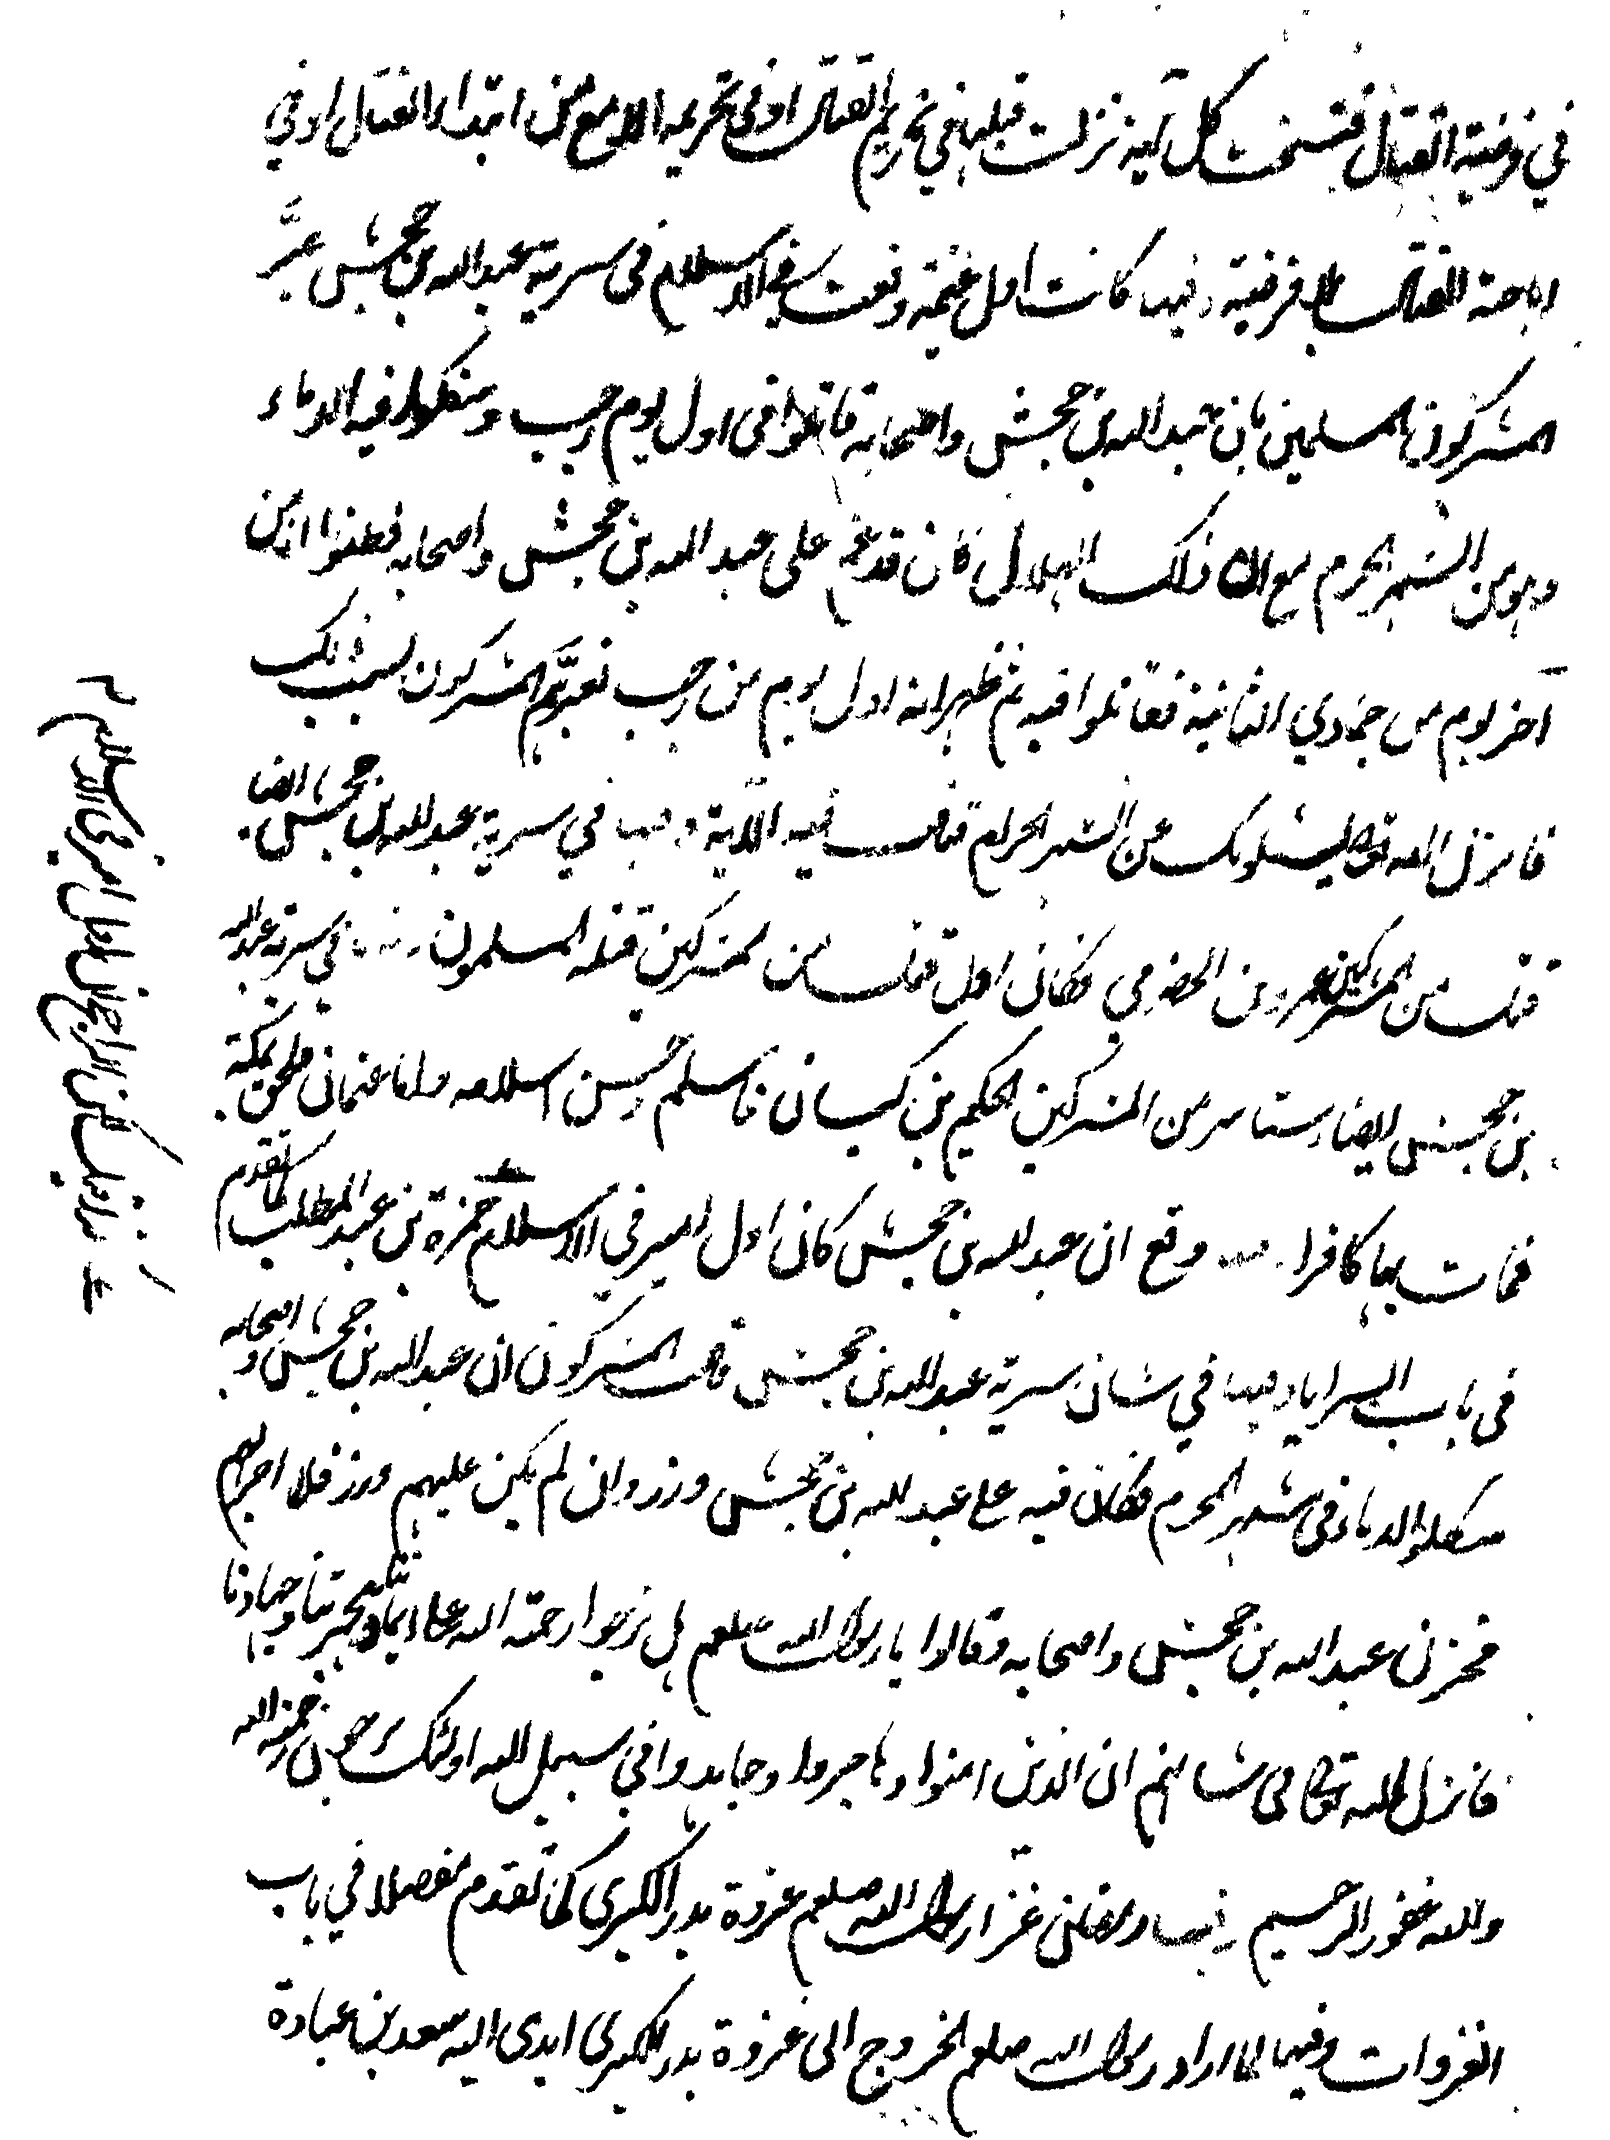 في فرضية القتال فنسخت كل آية نزلت قبلها في تحريم القتال او في تحريمه الا مع من ابتداء القتال او في
اباحة القتال بلا فرضية وفيها كانت اول غنيمة وقعت في الاسلام في سرية عبدالله بن جحش عيّر
المشركون المسلمين بان عبدالله بن جحش واصحابه قاتلوا في اول يوم رجب وسفكوا فيه الدماء
وهو من الشهر الحرم مع ان ذلك الهلال كان قد غم على عبد الله بن جحش واصحابه فظنوا انه من
آخر يوم من جمادي الثانية فقاتلوا فيه ثم ظهر انه اول يوم من رجب فعيّرهم المشركون بسبب ذلك
فانزل الله تعالى يسئلونك عن الشهر الحرام قتال فيه الآية وفيها في سرية عبدالله بن جحش ايضا
قتل من المشركين عمرو بن الحضرمي فكان اول قتيل من المشركين قتله المسلمون وفيها في سرية عبدالله
بن جحش ايضا استاسر من المشركين الحكيم بن كيسان فاسلم وحسن اسلامه واما عثمان فلحق بمكة
فمات بها كافرا وقع ان عبدالله بن جحش كان اول امير في الاسلام حمزة بن عبد المطلب كما تقدم
في باب السرايا وفيها في شان سرية عبدالله بن جحش قالت المشركون ان عبدالله بن جحش واصحابه
سفكوا الدماء في شهر المحرم فكان فيه على عبدالله بن جحش وزر وان لم يكن عليهم وزر فلا اجر لهم
فحزن عبدالله بن جحش واصحابه فقالوا يا رسول الله صلعم هل نرجوا رحمة الله على ايماننا وهجرتنا وجهادنا
فانزل الله تعالى في شانهم ان الذين امنوا وهاجروا وجاهدوا في سبيل الله اولئك يرجون رحمة الله
والله غفور الرحيم وفيها في رمضان غزا رسول الله صلعم غزوة بدر الكبرى كما تقدم مفصلا في باب
الغزوات وفيها لما اراد رسول الله صلعم الخروج الى غزوة بدر الكبرى اهدى اليه سعد بن عبادة